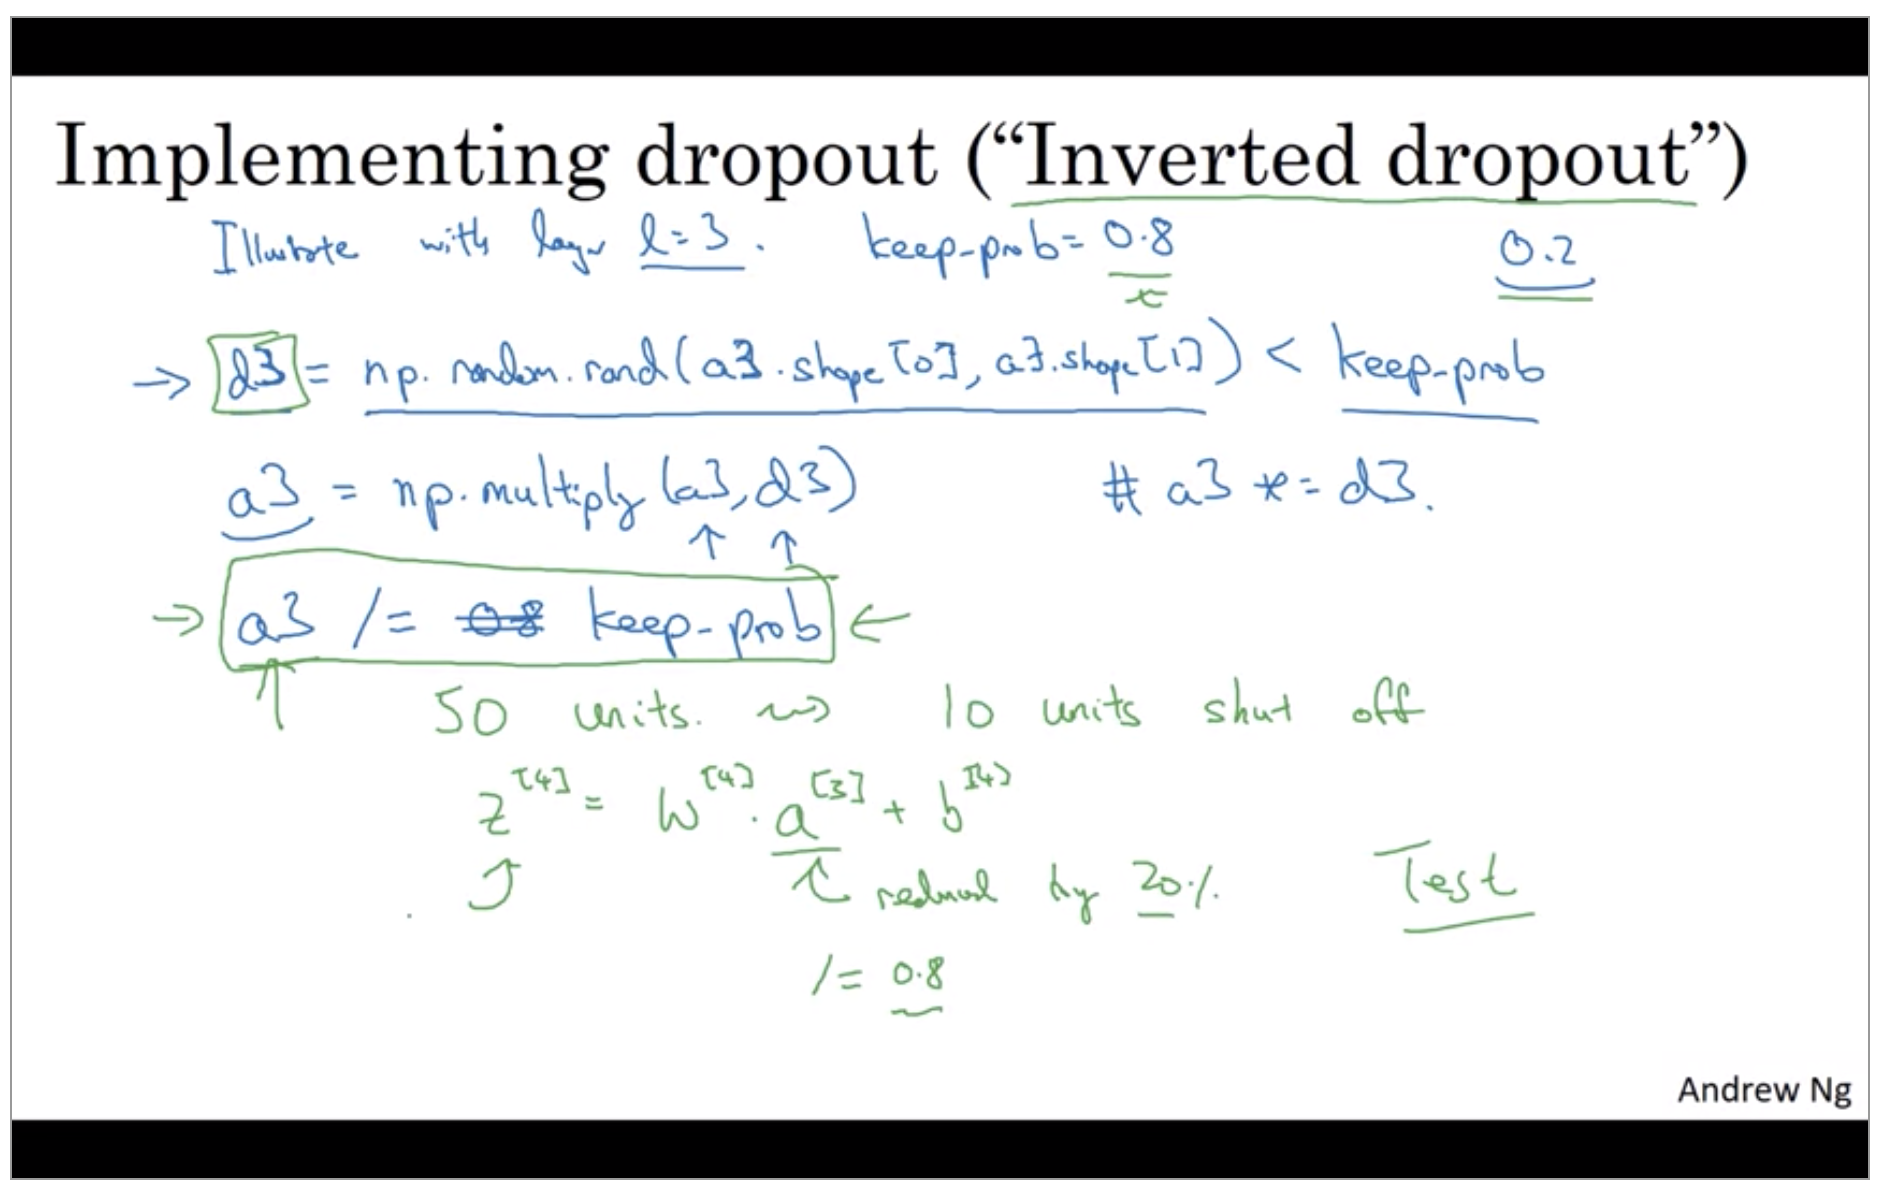 Implementing dropout (“Inverted dropout”)
Illustrate with layer l=3. keep-prob=0.8 0.2
→ d3 = np.random.rand(a3.shape[0], a3.shape[1]) < keep-prob
a3 = np.multiply(a3, d3) # a3 *= d3.
→ a3 /= 0.8 keep-prob ←
50 units. ⇝ 10 units shut off
z^[4] = W^[4] · a^[3] + b^[4]
reduced by 20% Test
/= 0.8
Andrew Ng